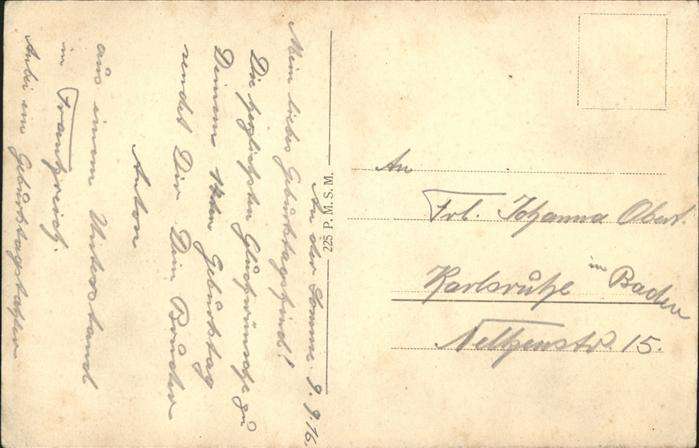 An der Somme 9. 9. 16.
Mein liebes Geburtstagskind!
Die herzlichsten Glückwünsche zu
Deinem 14ten Geburtstag
sendet Dir Dein Bruder
Anton
aus einem Unterstand
in Frankreich.
Anbei ein Geburtstagskuchen
225 P. M. S. M.
An
Frl. Johanna Obert.
Karlsruhe in Baden
Nelkenstr. 15.